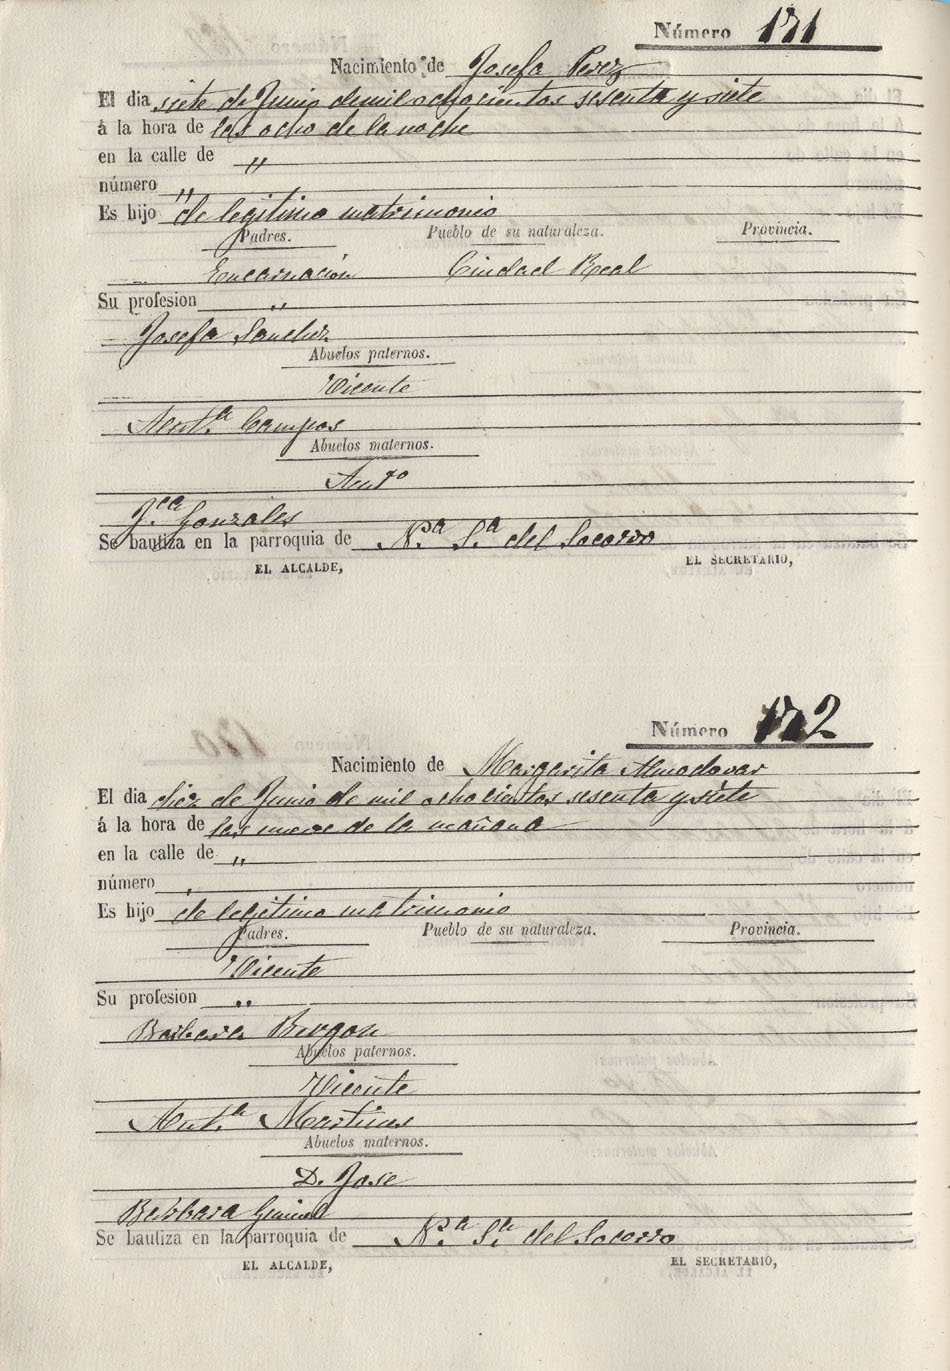 Número 171
Nacimiento de Josefa Perez
El dia siete de Junio de mil ochocientos sesenta y siete
á la hora de las ocho de la noche
en la calle de "
número "
Es hijo de legitimo matrimonio
Padres. Pueblo de su naturaleza. Provincia.
Encarnación Ciudad Real
Su profesion "
Josefa Sanchez
Abuelos paternos.
Vicente
Antª Campos
Abuelos maternos.
Antº
Jcª Gonzales
Se bautiza en la parroquia de Nª Sª del Socorro
EL ALCALDE, EL SECRETARIO,
Número 172
Nacimiento de Margarita Almodovar
El dia diez de Junio de mil ochocientos sesenta y siete
á la hora de las nueve de la mañana
en la calle de "
número "
Es hijo de legitimo matrimonio
Padres. Pueblo de su naturaleza. Provincia.
Vicente
Su profesion "
Barbara
Abuelos paternos.
Vicente
Antª Martines
Abuelos maternos.
D. Jose
Barbara
Se bautiza en la parroquia de Nª Sª del Socorro
EL ALCALDE, EL SECRETARIO,